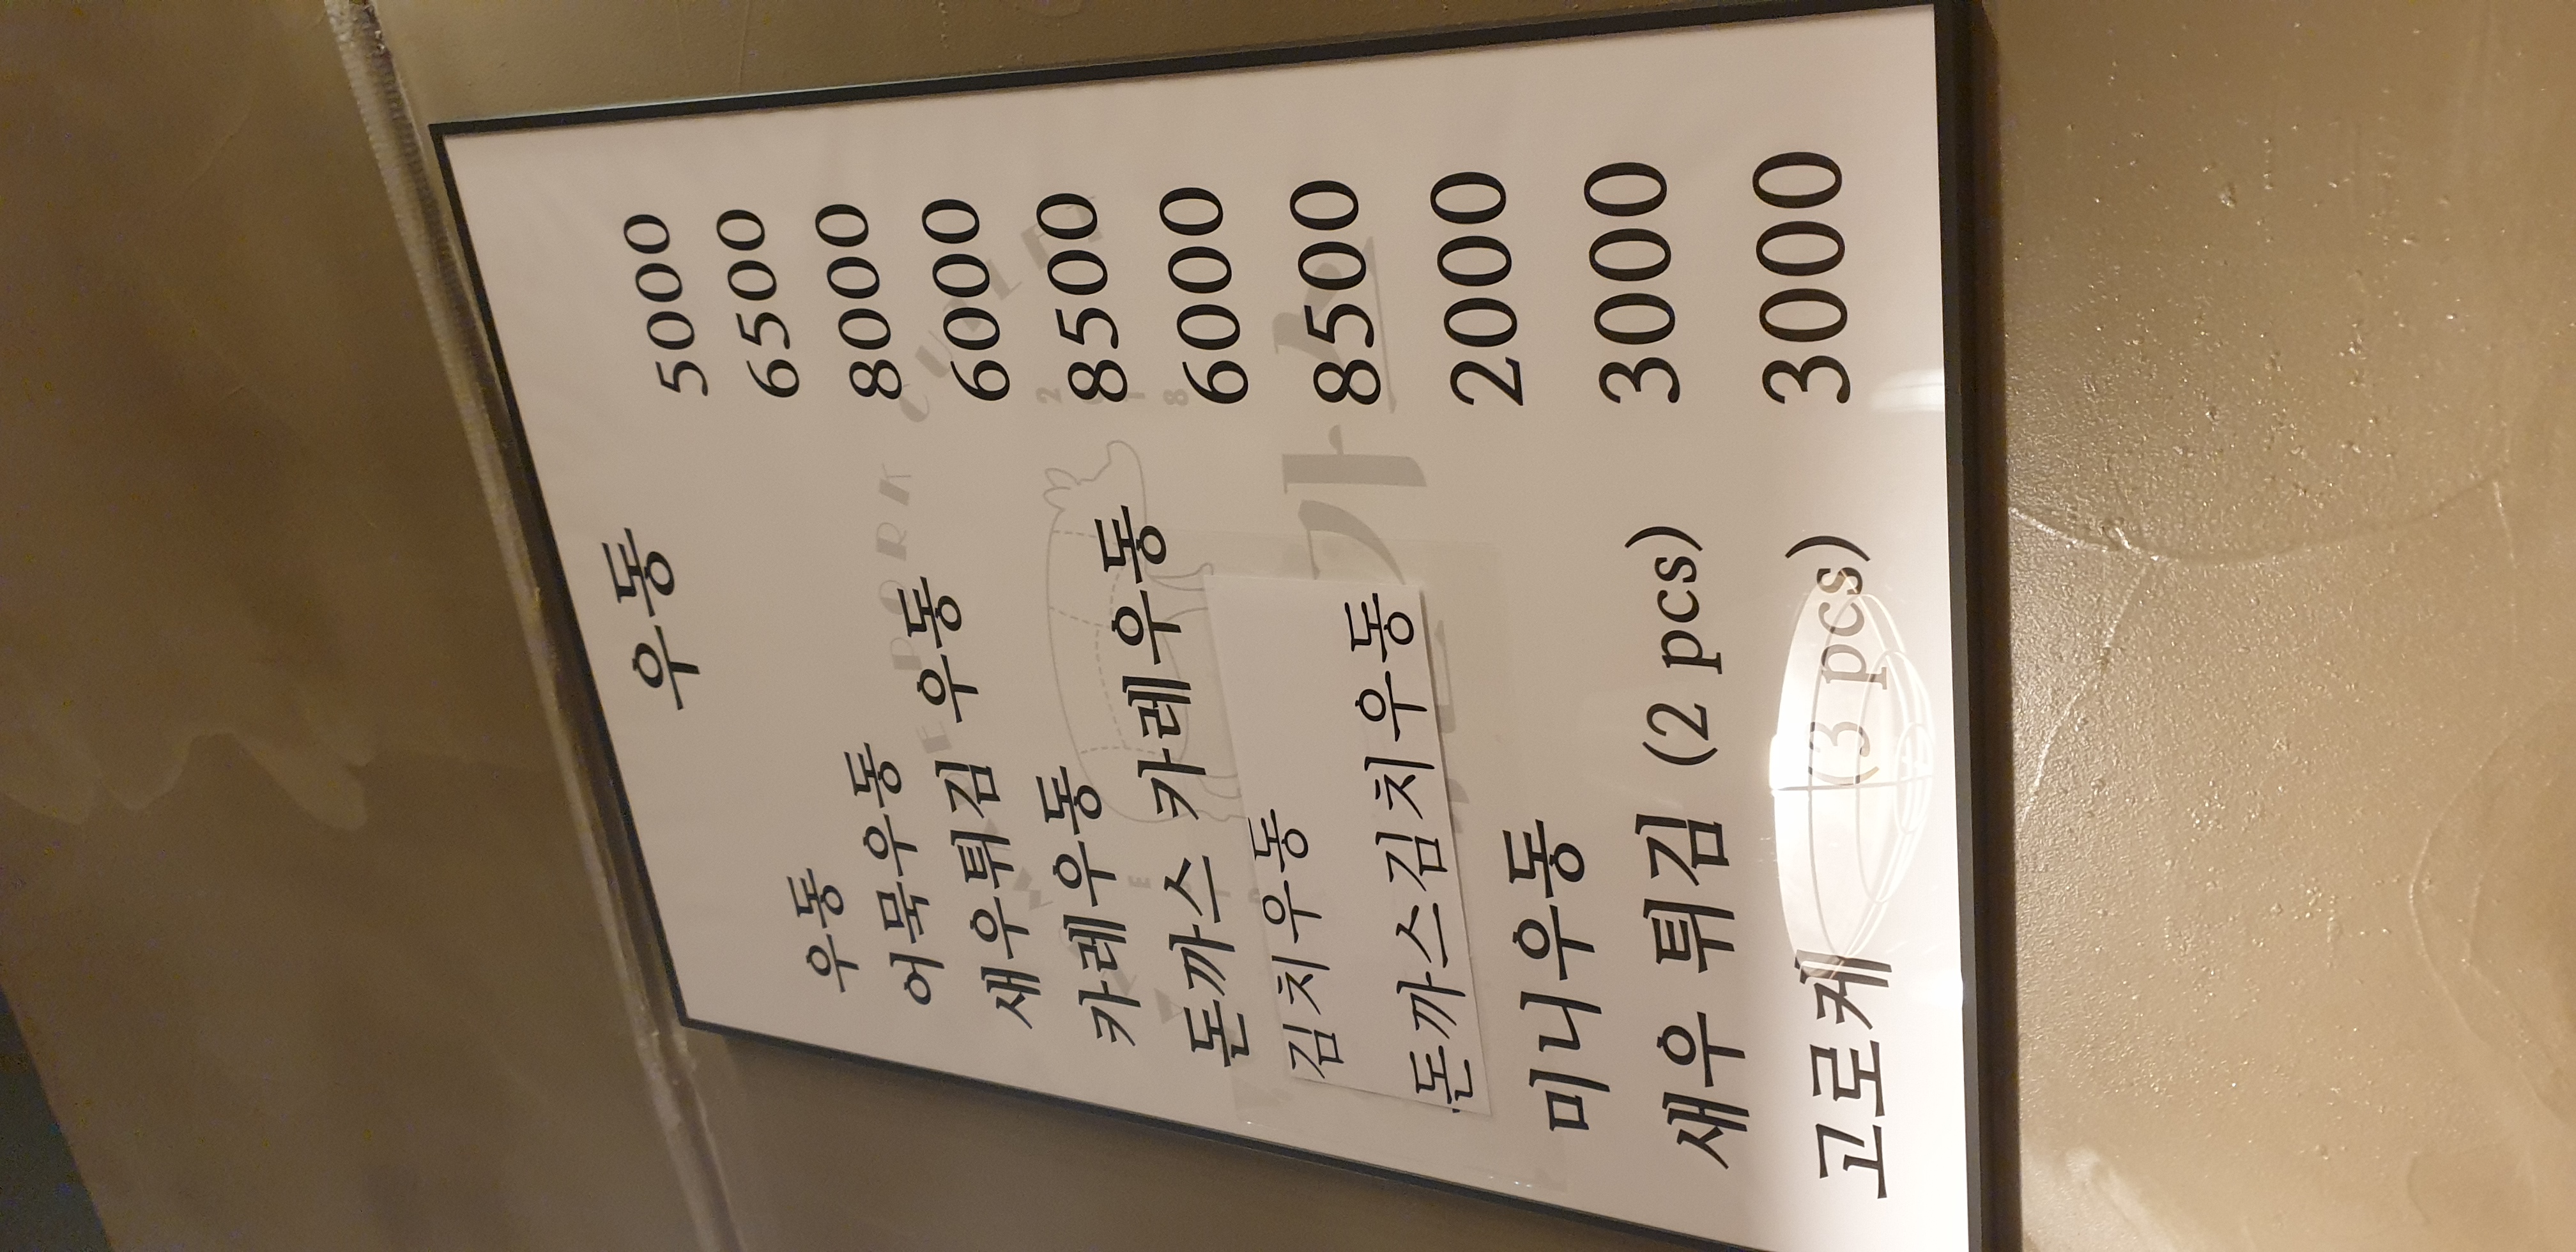 우동
우동 5000
어묵우동 6500
새우튀김 우동 8000
카레우동 6000
돈까스 카레우동 8500
김치우동 6000
돈까스김치우동 8500
미니우동 2000
새우 튀김 (2 pcs) 3000
고로케 (3 pcs) 3000